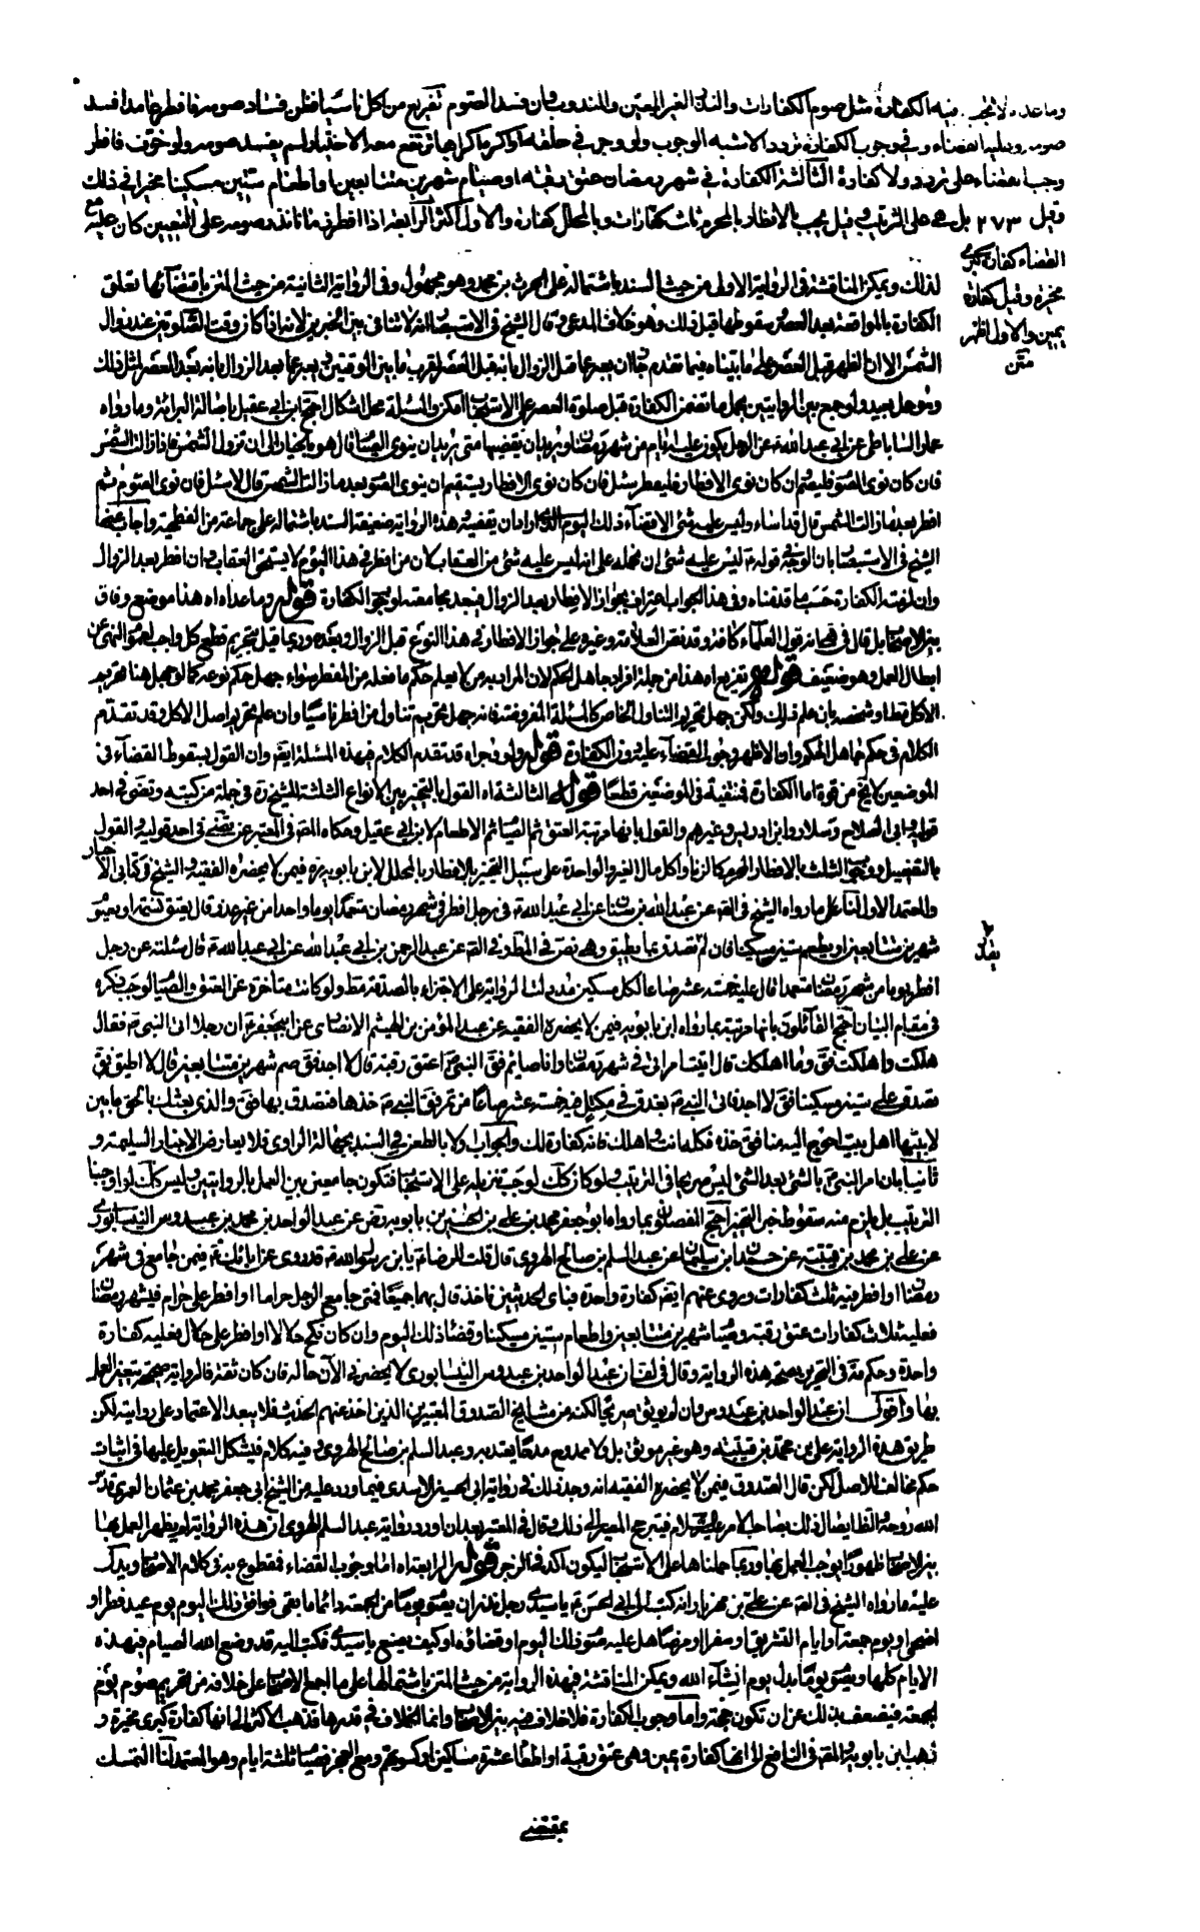 وما عداه لا تجب فيه الكفارة مثل صوم الكفارات والنذر الغير المعين والمندوب وان فسد الصوم تفريع من اكل ناسيا فظن فساد صومه فافطر عامدا فسد
صومه وعليه القضاء وفي وجوب الكفارة تردد والاشبه الوجوب ولو وجر في حلقه او اكره اكراها يرتفع معه الاختيار لم يفسد صومه ولو خوف فافطر
وجب القضاء على تردد ولا كفارة الثالثة الكفارة في شهر رمضان عتق رقبة او صيام شهرين متتابعين او اطعام ستين مسكينا مخيرا في ذلك
وقيل ٢٧٣ بل هي على الترتيب وقيل يجب بالافطار بالمحرم ثلث كفارات وبالمحلل كفارة والاول اكثر الرابعة اذا افطر زمانا نذر صومه على التعيين كان عليه
القضاء وكفارة كبرى
مخيرة وقيل كفارة
يمين والاول اظهر
متن
لذلك ويمكن المناقشة في الرواية الاولى من حيث السند باشتماله على الحرث بن محمد وهو مجهول وفي الرواية الثانية من حيث المتن باقتضائها تعلق
الكفارة بالمواقعة بعد العصر وسقوطها قبل ذلك وهو خلاف المدعى وقال الشيخ في الاستبصار انه لا تنافى بين الخبرين لانه اذا كان وقت الصلوتين عند زوال
الشمس الا ان الظهر قبل العصر على ما بيناه فيما تقدم جاز ان يعبر عما قبل الزوال بانه قبل العصر لقرب ما بين الوقتين ويعبر عما بعد الزوال بانه بعد العصر لمثل ذلك
وهو حمل بعيد ولو جمع بين الروايتين بحمل ما تضمن الكفارة قبل صلوة العصر على الاستحباب امكن والمسئلة محل اشكال احتج ابن ابي عقيل باصالة البرائة وما رواه
عمار الساباطي عن ابي عبد الله ع عن الرجل يكون عليه ايام من شهر رمضان ويريد ان يقضيها متى يريد ان ينوى الصيام قال هو بالخيار الى ان تزول الشمس فاذا زالت الشمس
فان كان نوى الصوم فليصم وان كان نوى الافطار فليفطر سئل فان كان نوى الافطار يستقيم ان ينوى الصوم بعد ما زالت الشمس قال لا سئل فان نوى الصوم ثم
افطر بعد ما زالت الشمس قال قد اساء وليس عليه شئ الا قضاء ذلك اليوم الذي اراد ان يقضيه وهذه الرواية ضعيفة السند باشتماله على جماعة من الفطحية واجاب عنها
الشيخ في الاستبصار بان الوجه في قوله ع ليس عليه شئ ان نحمله على انه ليس عليه شئ من العقاب لان من افطر في هذا اليوم لا يستحق العقاب وان افطر بعد الزوال
وان لزمته الكفارة حسب ما قدمناه وفي هذا الجواب اعتراف بجواز الافطار بعد الزوال فيبعد مجامعته لوجوب الكفارة قوله وما عداه اه هذا موضع وفاق
بين الاصحاب بل قال في المنتهى انه قول العلماء كافة وقد نص العلامة وغيره على جواز الافطار في هذا النوع قبل الزوال وبعده وربما قيل بتحريم قطع كل واجب لعموم النهي عن
ابطال العمل وهو ضعيف قوله تفريع اه هذا من جملة افراد جاهل الحكم لان المراد به من لا يعلم حكم ما فعله من المفطر سواء جهل حكم نوعه كما لو جهل هنا تحريم
الاكل قطعا او شخصه بان علم ذلك ولكن جهل تحريم التناول الخاص كالمسئلة المفروضة فانه جهل تحريم تناول من افطر ناسيا وان علم تحريم اصل الاكل وقد تقدم
الكلام في حكم جاهل الحكم وان الاظهر وجوب القضاء عليه دون الكفارة قوله ولو وجر اه قد تقدم الكلام في هذه المسئلة ايضا وان القول بسقوط القضاء في
الموضعين لا يخ من قوة اما الكفارة فمنتفية في الموضعين قطعا قوله الثالثة اه القول بالتخيير بين الانواع الثلثة للشيخ ره في جملة من كتبه والمرتضى في احد
قوليه وابي الصلاح وسلار وابن ادريس وغيرهم والقول بانها مرتبة العتق ثم الصيام ثم الاطعام لابن ابي عقيل وحكاه المصنف في المعتبر عن المرتضى في احد قوليه والقول
بالتفصيل ووجوب الثلث بالافطار بالمحرم كالزنا واكل مال الغير والواحدة على سبيل التخيير بالافطار بالمحلل لابن بابويه ره فيمن لا يحضره الفقيه والشيخ في كتابي الاخبار
والمعتمد الاول لنا على ما رواه الشيخ في الصحيح عن عبد الله بن سنان عن ابي عبد الله ع في رجل افطر في شهر رمضان متعمدا يوما واحدا من غير عذر قال يعتق نسمة او يصوم
شهرين متتابعين او يطعم ستين مسكينا فان لم يقدر تصدق بما يطيق وهي نص في المط وفي الصحيح عن عبد الرحمن بن ابي عبد الله عن ابي عبد الله ع قال سئلته عن رجل
افطر يوما من شهر رمضان متعمدا قال عليه خمسة عشر صاعا لكل مسكين مد دلت الرواية على الاجتزاء بالصدقة مط ولو كانت متأخرة عن العتق والصيام لوجب ذكره
في مقام البيان احتج القائلون بانها مرتبة بما رواه ابن بابويه فيمن لا يحضره الفقيه عن عبد المؤمن بن الهيثم الانصاري عن ابي جعفر ع ان رجلا اتى النبي ص فقال
هلكت واهلكت فق وما اهلكك قال اتيت امراتي في شهر رمضان وانا صائم فق النبي ص اعتق رقبة قال لا اجد فق صم شهرين متتابعين فقال لا اطيق فق
تصدق على ستين مسكينا فق لا اجد فاتى النبي ص بعذق في مكتل فيه خمسة عشر صاعا من تمر فق النبي ص خذها فتصدق بها فق والذي بعثك بالحق ما بين
لابتيها اهل بيت احوج اليه منا فق خذه فكله انت واهلك فانه كفارة لك والجواب اولا بالطعن في السند بجهالة الراوي فلا يعارض الاخبار السليمة و
ثانيا بان امر النبي ص بالشئ بعد الشئ ليس صريحا في الترتيب ولو كان كك لوجب تنزيله على الاستحباب فتكون جامعين بين العمل بالروايتين وليس كك لو اوجبنا
الترتيب بل يلزم منه سقوط خبر التخيير احتج المفصلون بما رواه ابو جعفر محمد بن علي بن الحسين بن بابويه رض عن عبد الواحد بن محمد بن عبدوس النيسابوري
عن علي بن محمد بن قتيبة عن حمدان بن سليمان عن عبد السلم بن صالح الهروي قال قلت للرضا ع يا بن رسول الله ص قد روى عن ابائك ع فيمن جامع في شهر
رمضان او افطر فيه ثلث كفارات وروى عنهم ايضا كفارة واحدة فباي الحديثين ناخذ قال بهما جميعا فمتى جامع الرجل حراما او افطر على حرام في شهر رمضان
فعليه ثلاث كفارات عتق رقبة وصيام شهرين متتابعين واطعام ستين مسكينا وقضاء ذلك اليوم وان كان نكح حلالا او افطر على حلال فعليه كفارة
واحدة وحكم مة في التحرير بصحة هذه الرواية وقال في لف ان عبد الواحد بن عبدوس النيسابوري لا يحضرني الآن حاله فان كان ثقة فالرواية صحيحة يتعين العمل
بها واقول ان عبد الواحد بن عبدوس وان لم يوثق صريحا لكنه من مشايخ الصدوق المعتبرين الذين اخذ عنهم الحديث فلا يبعد الاعتماد على روايته لكن
طريق هذه الرواية علي بن محمد بن قتيبة وهو غير موثق بل ولا ممدوح مدحا يعتد به وعبد السلم بن صالح الهروي وفيه كلام فيشكل التعويل عليها في اثبات
حكم مخالف للاصل لكن قال الصدوق فيمن لا يحضره الفقيه انه وجد ذلك في رواية ابي الحسين الاسدي فيما ورد عليه من الشيخ ابي جعفر محمد بن عثمان العمري قدس
الله روحه والظ ايصال ذلك بصاحب الامر عليه السلام فيترجح المصير الى ذلك وقال في المعتبر بعد ان اورد رواية عبد السلم الهروي ان هذه الرواية لم يظهر العمل بها
بين الاصحاب ظهورا يوجب العمل بها وربما حملناها على الاستحباب ليكون آكد في الزجر قوله الرابعة اه اما وجوب القضاء فمقطوع به في كلام الاصحاب ويدل
عليه ما رواه الشيخ في الصحيح عن علي بن مهزيار انه كتب الى ابي الحسن ع يا سيدي رجل نذر ان يصوم يوما من الجمعة دائما ما بقى فوافق ذلك اليوم يوم عيد فطر او
اضحى او يوم جمعة او ايام التشريق او سفر او مرض هل عليه صوم ذلك اليوم او قضاؤه او كيف يصنع يا سيدي فكتب اليه قد وضع الله الصيام في هذه
الايام كلها ويصوم يوما بدل يوم انشاء الله ويمكن المناقشة في هذه الرواية من حيث المتن باشتمالها على ما اجمع الاصحاب على خلافه من تحريم صوم يوم
الجمعة فيضعف بذلك عن ان تكون حجة واما وجوب الكفارة فلا خلاف فيه بين الاصحاب وانما الخلاف في قدرها فذهب الاكثر الى انها كفارة كبرى مخيرة و
ذهب ابن بابويه والمصنف في النافع الى انها كفارة يمين وهي عتق رقبة او اطعام عشرة مساكين او كسوتهم ومع العجز فصيام ثلثة ايام وهو المعتمد لنا التمسك
بمقتضى